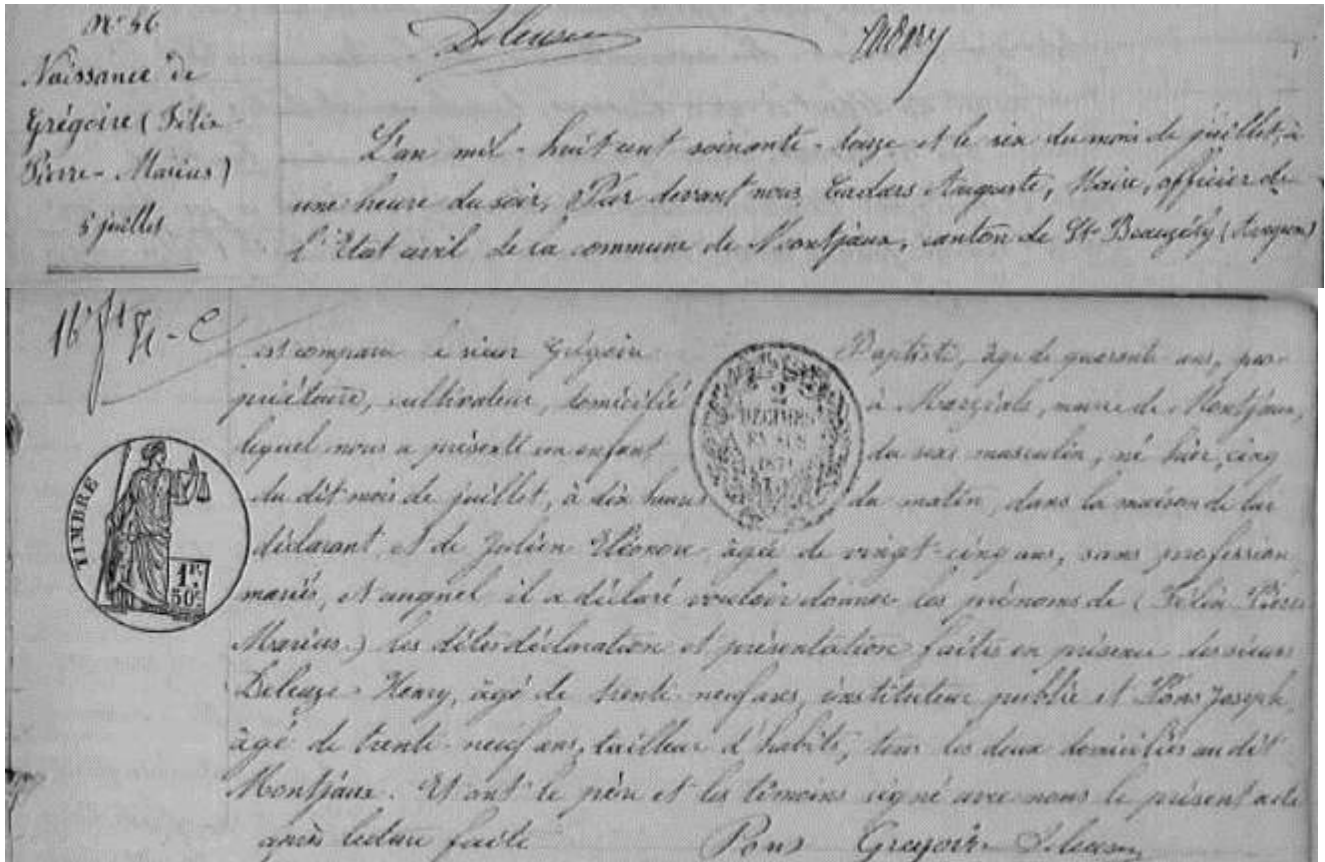 N° 46
Naissance de
Grégoire (Félix
Pierre-Marius)
5 juillet.
Deleuze
L'an mil-huit cent soixante-douze et le six du mois de juillet, à
une heure du soir, Par devant nous Cadars Auguste, Maire, officier de
l'Etat civil de la commune de Montjaux, canton de St Beauzély (Aveyron)
est comparu le sieur Grégoire Baptiste, âgé de quarante ans, pro-
priétaire, cultivateur, domicilié à Marzials, mairie de Montjaux,
lequel nous a présenté un enfant du sexe masculin, né hier, cinq
du dit mois de juillet, à dix heures du matin, dans la maison de lui
déclarant, et de Julien Eléonore, âgée de vingt-cinq ans, sans profession
mariés, et auquel il a déclaré vouloir donner les prénoms de (Félix Pierre
Marius) les dites déclaration et présentation faites en présence des sieurs
Deleuze Henry, âgé de trente-neuf ans, instituteur public et Pons Joseph,
âgé de trente-neuf ans, tailleur d'habits, tous les deux domiciliés au dit
Montjaux. Et ont le père et les témoins signé avec nous le présent acte
après lecture faite
Pons Gregoire Deleuze
2
DÉCIMES
EN SUS
1871
TIMBRE
1F.
50C.